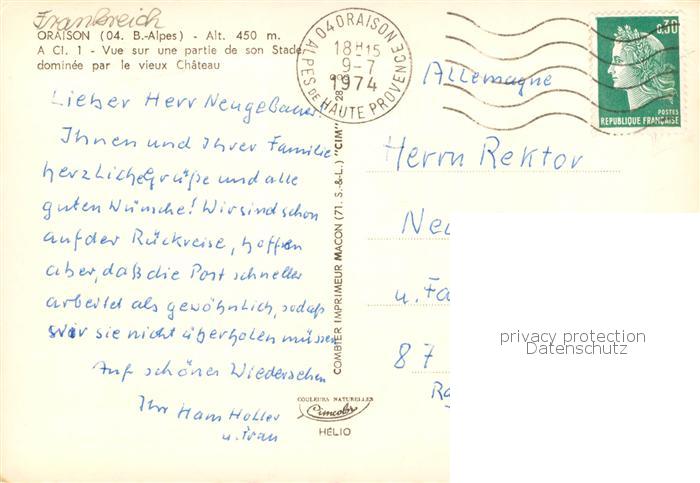 Frankreich
ORAISON (04. B.-Alpes) - Alt. 450 m.
A Cl. 1 - Vue sur une partie de son Stade,
dominée par le vieux Château
04 ORAISON
18H15
9-7
1974
ALPES DE HAUTE PROVENCE
0,30
POSTES
REPUBLIQUE FRANÇAISE
Allemagne
Lieber Herr Neugebauer!
Ihnen und Ihrer Familie
herzliche Grüße und alle
guten Wünsche! Wir sind schon
auf der Rückreise, hoffen
aber, daß die Post schneller
arbeitet als gewöhnlich, sodaß
wir sie nicht überholen müssen.
Auf schönes Wiedersehen
Ihr Hans Holler
u. Frau
COMBIER IMPRIMEUR MACON (71. S.-&-L.) "CIM"
COULEURS NATURELLES
Cimcolor
HÉLIO
Herrn Rektor
Neu
u. Fa
87
privacy protection
Datenschutz